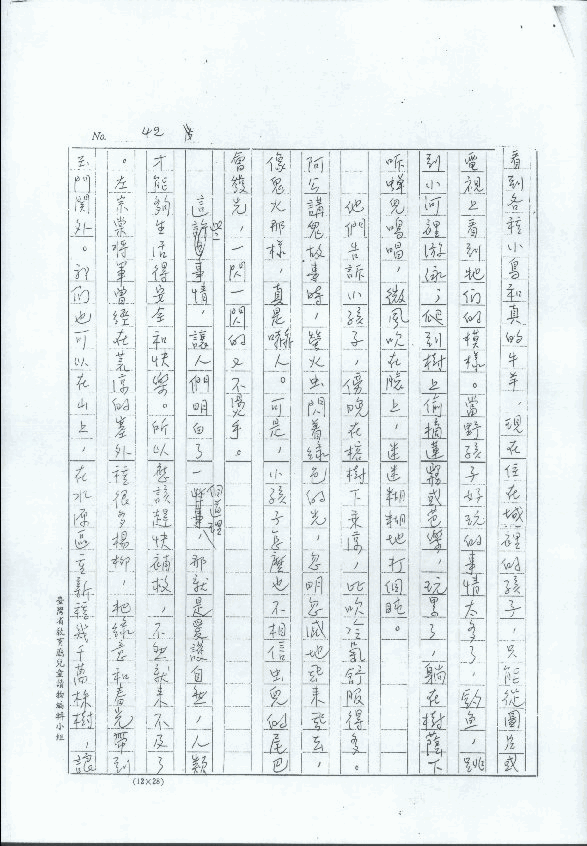 No. 42
看到各種小鳥和真的牛羊，現在住在城裡的孩子，只能從圖片或
電視上看到牠們的模樣。當野孩子好玩的事情太多了，釣魚，跳
到小河裡游泳；爬到樹上偷摘蓮霧或芭樂，玩累了，躺在樹蔭下
聽蟬兒唱唱，微風吹在臉上，迷迷糊糊地打個盹。
他們告訴小孩子，傍晚在榕樹下乘涼，比吹冷氣舒服得多。
阿公講鬼故事時，螢火蟲閃着綠色的光，忽明忽滅地飛來飛去，
像鬼火那樣，真是嚇人。可是，小孩子怎麼也不相信虫兒的尾巴
會發光，一閃一閃的又不燙手。
這些事情，讓人們明白了一個道理，那就是愛護自然，人類
才能夠生活得安全和快樂。所以應該趕快補救，不然就來不及了
。左宗棠將軍曾經在荒涼的塞外種很多楊柳，把綠意和春光帶到
玉門關外。我們也可以在山上，在水源區重新種幾千萬株樹，讓
臺灣省教育廳兒童讀物編輯小組
(12×28)